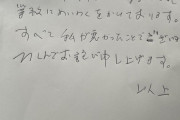 学校にめいわくをかけております。
すべて私が悪かったことで
お詫び申し上げます。
以上